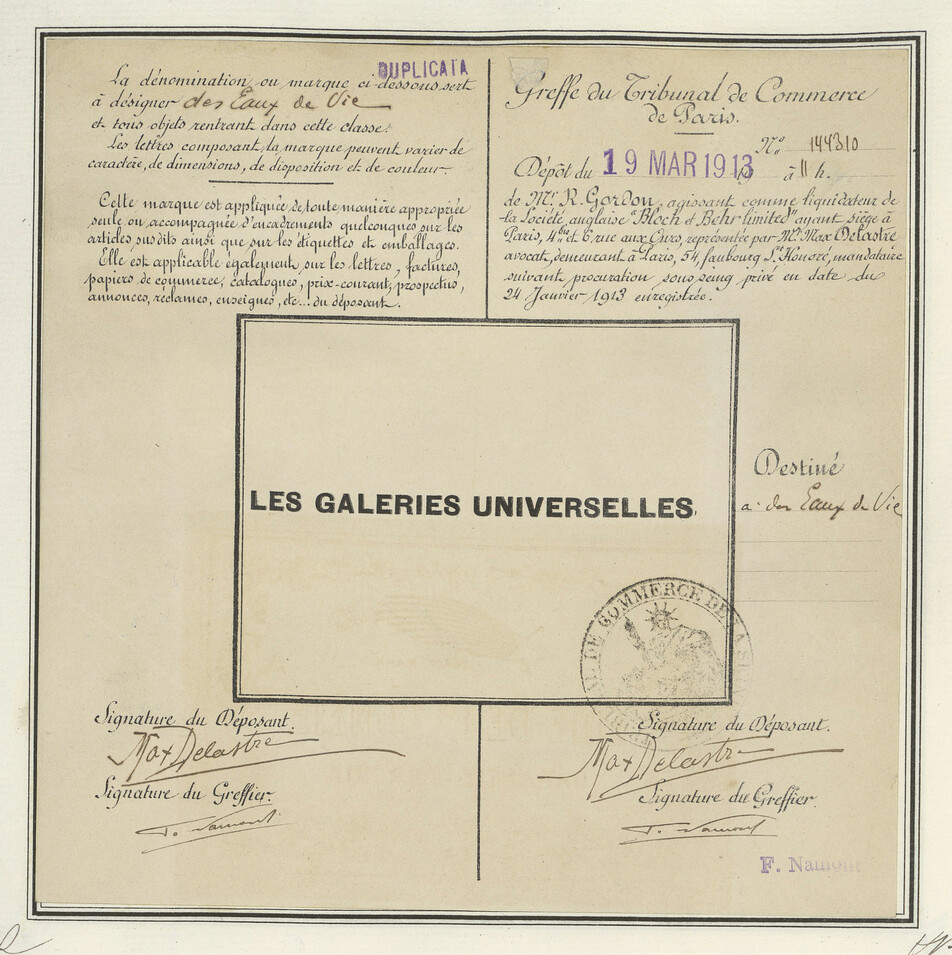 DUPLICATA
La dénomination ou marque ci-dessous sert
à désigner des Eaux de Vie
et tous objets rentrant dans cette classe.
Les lettres composant la marque peuvent varier de
caractère, de dimensions, de disposition et de couleur.
Cette marque est appliquée de toute manière appropriée
seule ou accompagnée d'encadrements quelconques sur les
articles susdits ainsi que sur les étiquettes et emballages.
Elle est applicable également sur les lettres, factures,
papiers de commerce, catalogues, prix-courant, prospectus,
annonces, réclames, enseignes, etc... du déposant.
Greffe du Tribunal de Commerce
de Paris.
No. 144310
Dépôt du 19 MAR 1913 à 11 h.
de Mr. R. Gordon, agissant comme liquidateur de
la Société anglaise "Bloch et Behr limited" ayant siège à
Paris, 4bis et 6 rue aux Ours, représentée par Mr. Max Delastre
avocat, demeurant à Paris, 54, faubourg St. Honoré, mandataire
suivant procuration sous seing privé en date du
24 Janvier 1913 enregistrée.
LES GALERIES UNIVERSELLES.
Destiné
à des Eaux de Vie
COMMERCE DE LA
Signature du Déposant.
Max Delastre
Signature du Greffier.
Signature du Déposant.
Max Delastre
Signature du Greffier.
F. Namour